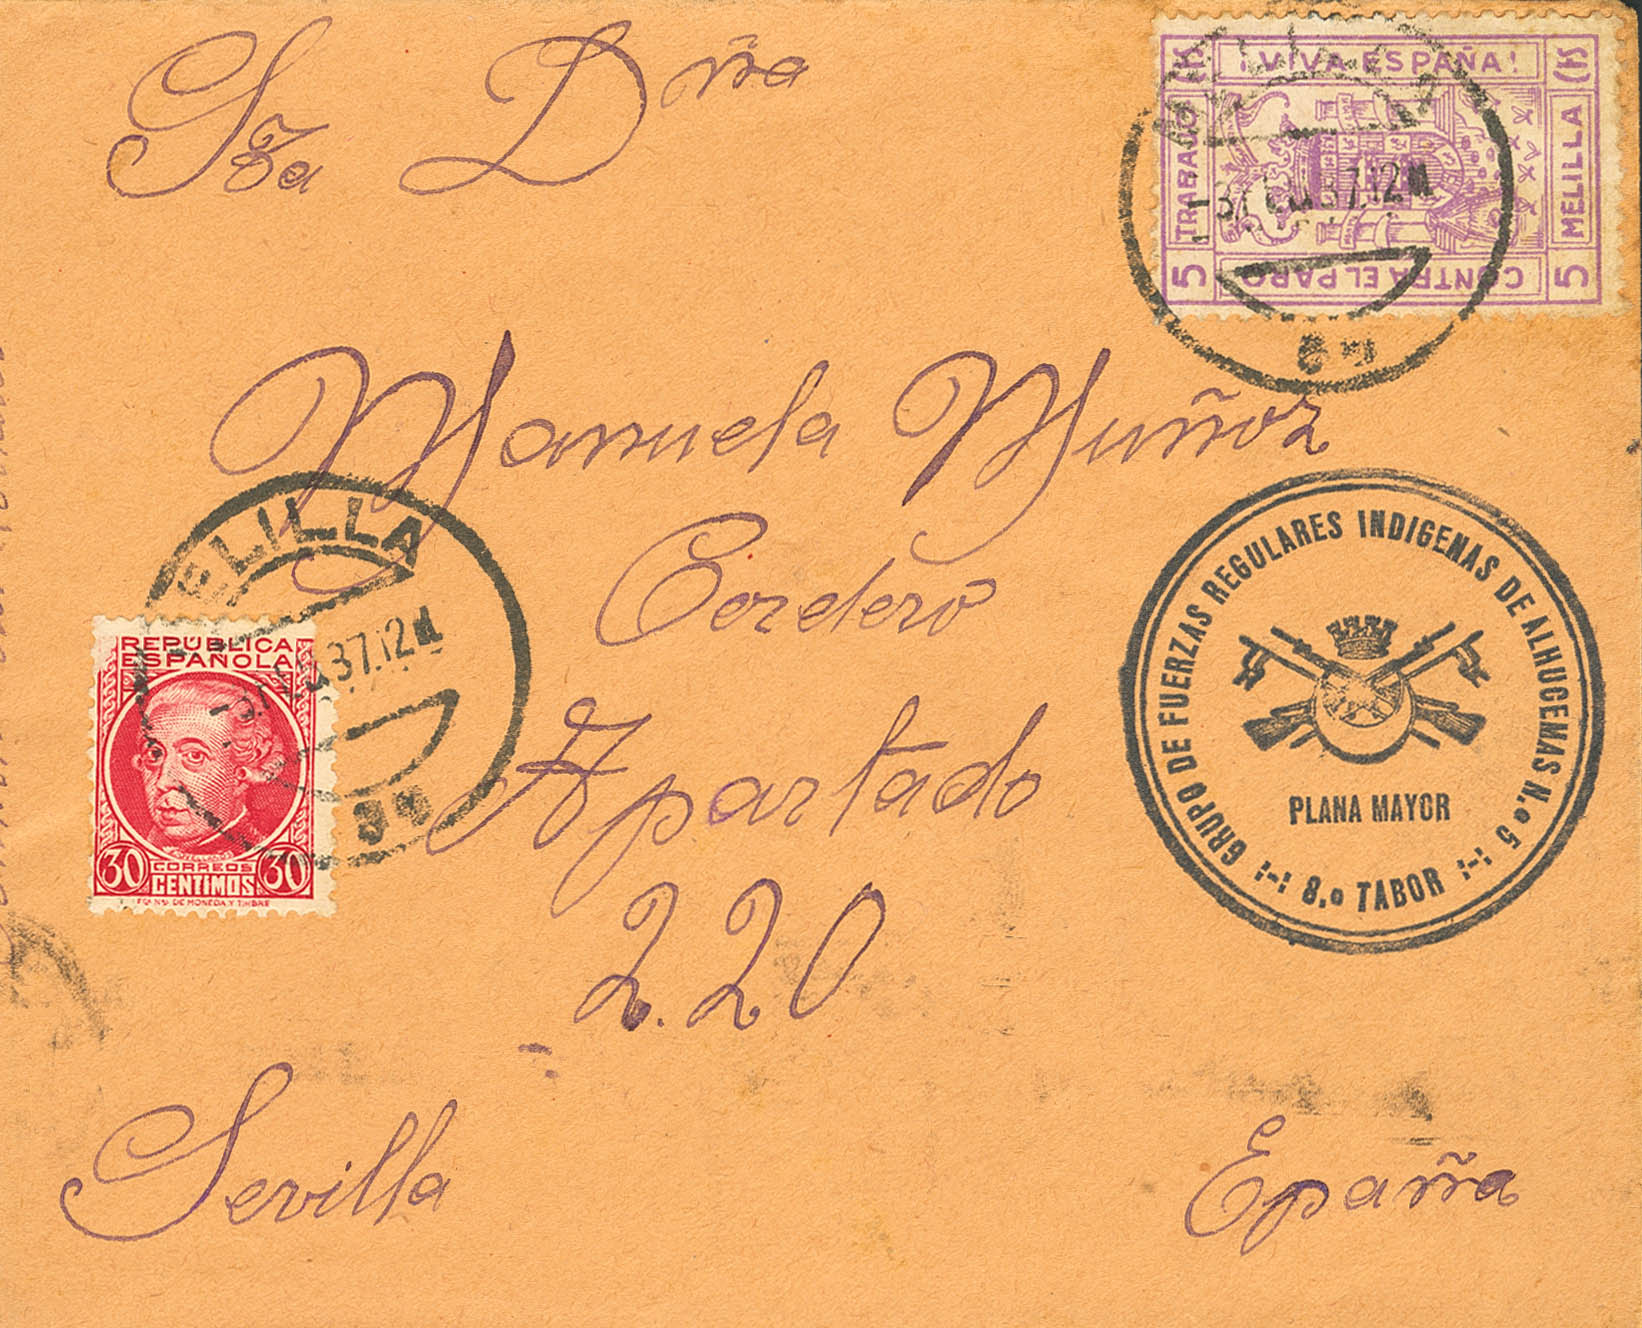 Sra Dña
¡VIVA ESPAÑA!
TRABAJO
MELILLA
5 CONTRA EL PARO 5
37.12M
Manuela Muñoz
MELILLA
Cordero
37.12M
REPÚBLICA
ESPAÑOLA
30 CORREOS 30
CENTIMOS
Apartado
2.20
GRUPO DE FUERZAS REGULARES INDIGENAS DE ALHUCEMAS N.º 5
PLANA MAYOR
:-: 8.º TABOR :-:
Sevilla
Epaña